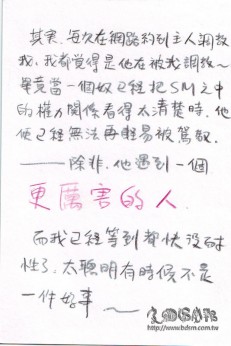 其實，每次在網路約到主人調教
我，我都覺得是他在被我調教～
畢竟當一個奴已經把SM之中
的權力關係看得太清楚時，他
便已經無法再輕易被駕馭。
——除非，他遇到一個
更厲害的人
而我已經等到都快沒耐
性了，太聰明有時候不是
一件好事～
http://www.bdsm.com.tw